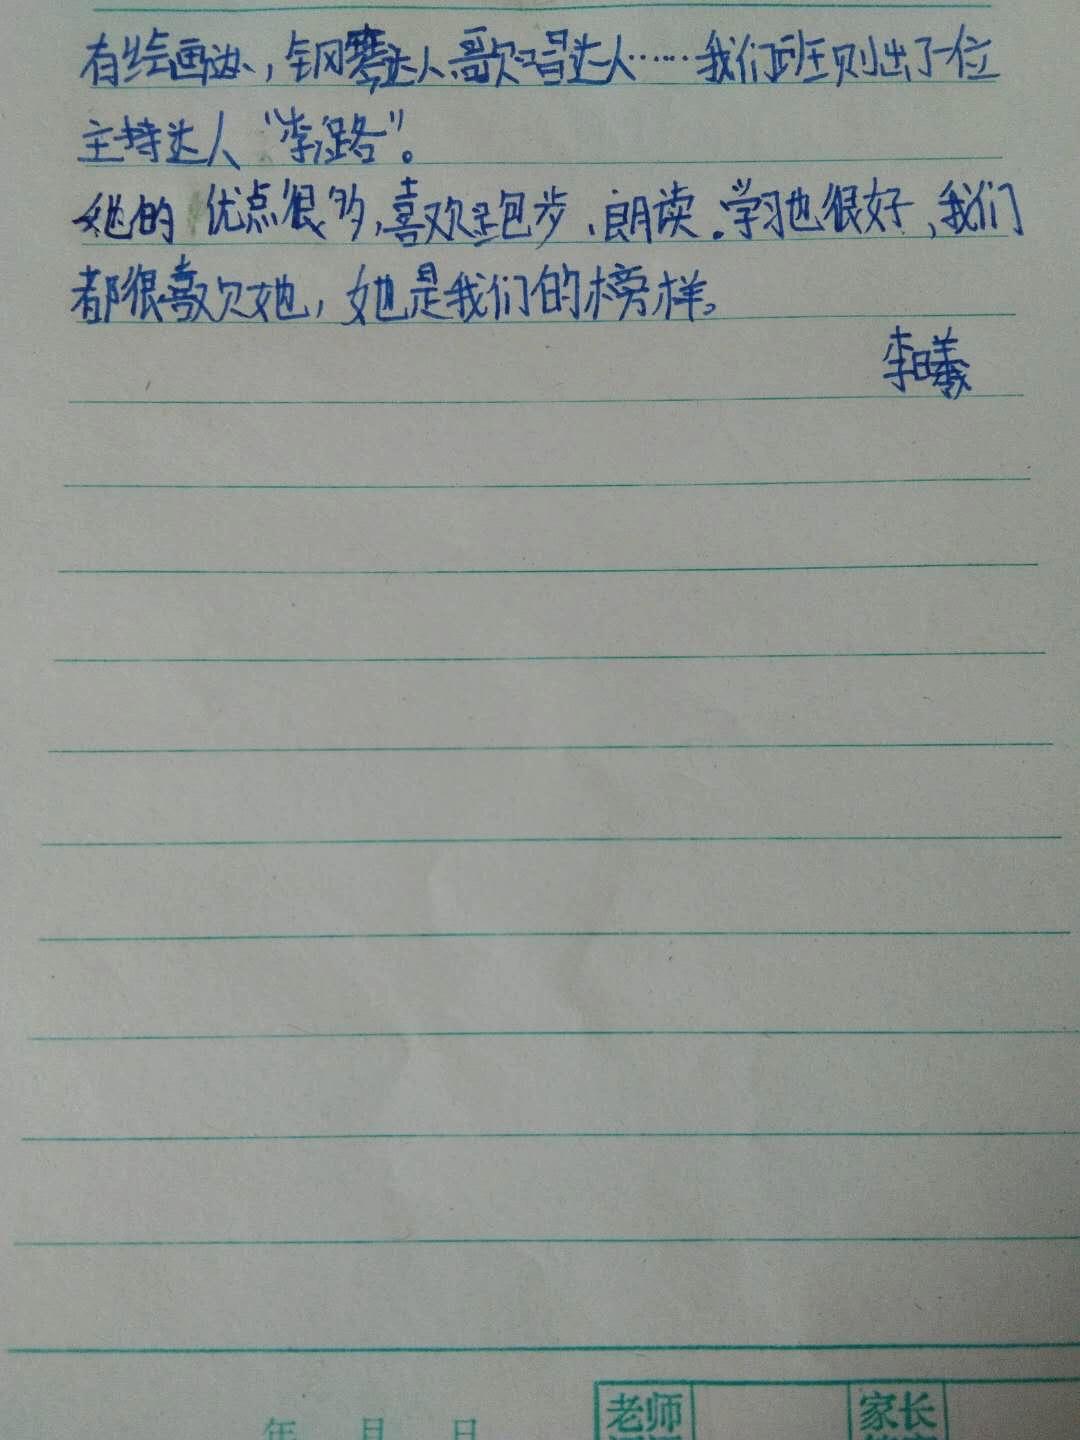 有绘画达人,钢琴达人歌唱达人……我们班则出了一位
主持达人“李潞”。
她的优点很多,喜欢跑步、朗读.学习也很好,我们
都很喜欢她,她是我们的榜样。
李曦
年 月 日
老师
家长